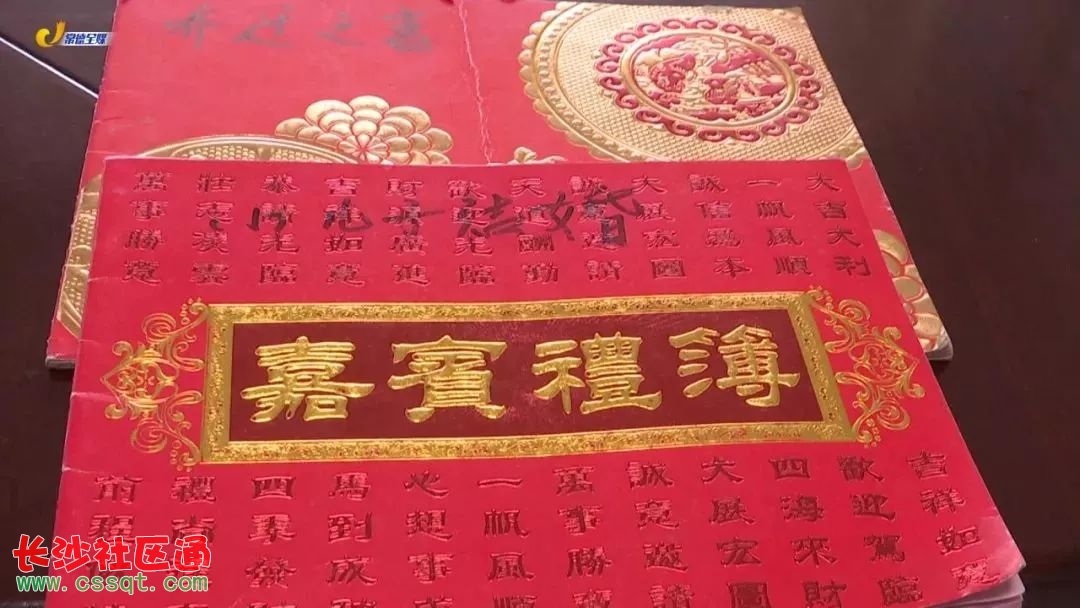 常德全媒
乔迁之喜
结婚
大吉大利
一帆風順
誠信為本
大展宏圖
誠意邀請
天道酬勤
歡迎光臨
財源廣進
吉祥如意
恭光臨
壯志雲
萬事勝意
嘉賓禮簿
吉祥如意
歡迎駕臨
四海來財
大展宏圖
誠意邀請
萬事勝意
一帆風順
心想事成
馬到成
四季發
禮尚
前
长沙社区通
www.cssqt.com